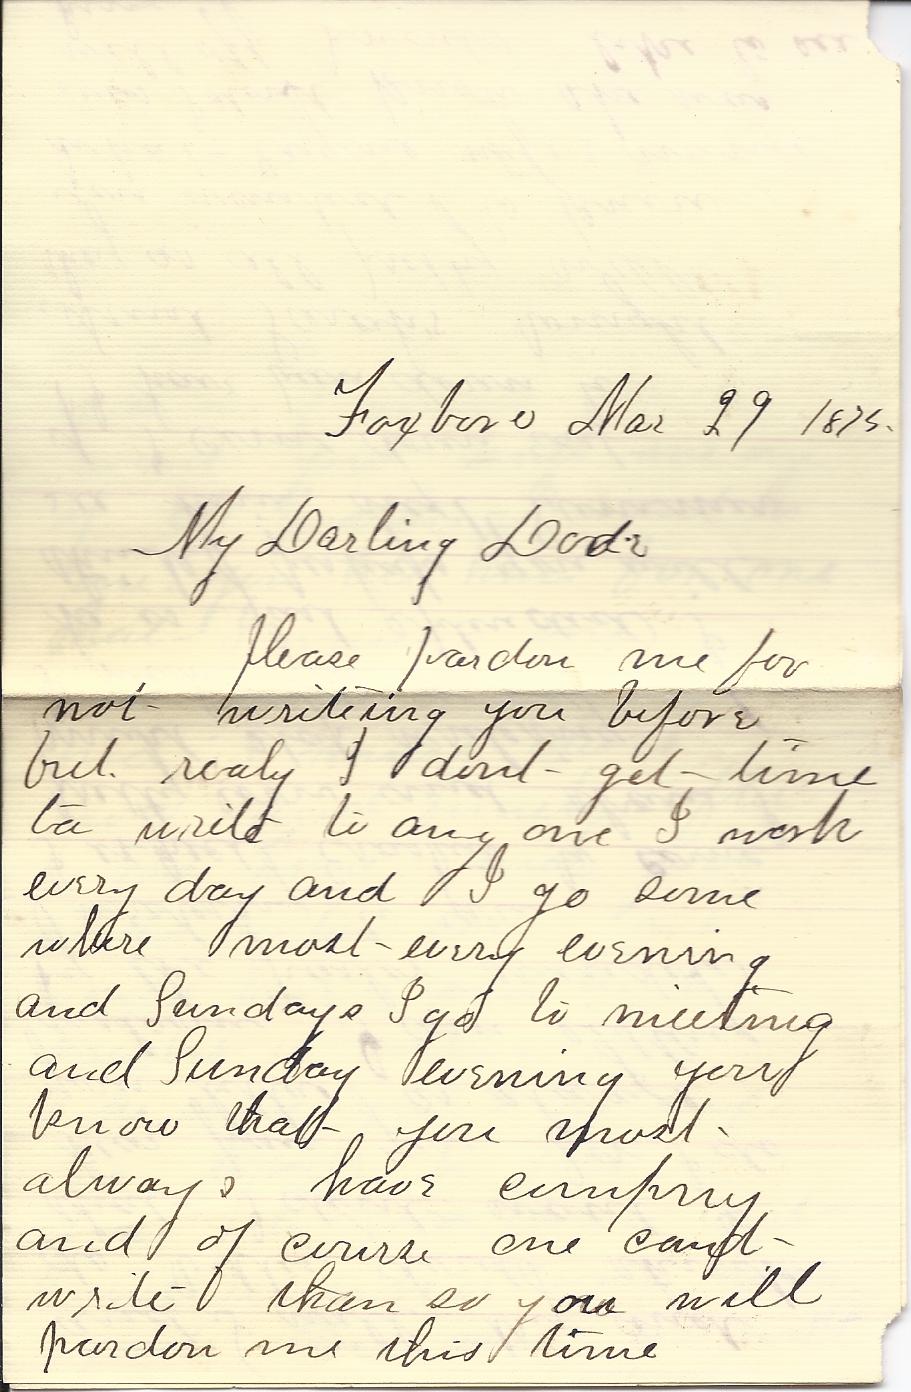 Foxboro Mar 29 1875.
My Darling
Please pardon me for
not writeing you before
but realy I dont get time
to write to any one I work
every day and I go some
where most every evening
and Sundays I go to meeting
and Sunday evening you
know that you most
always have compny
and of course one cant
write than so you will
pardon me this time